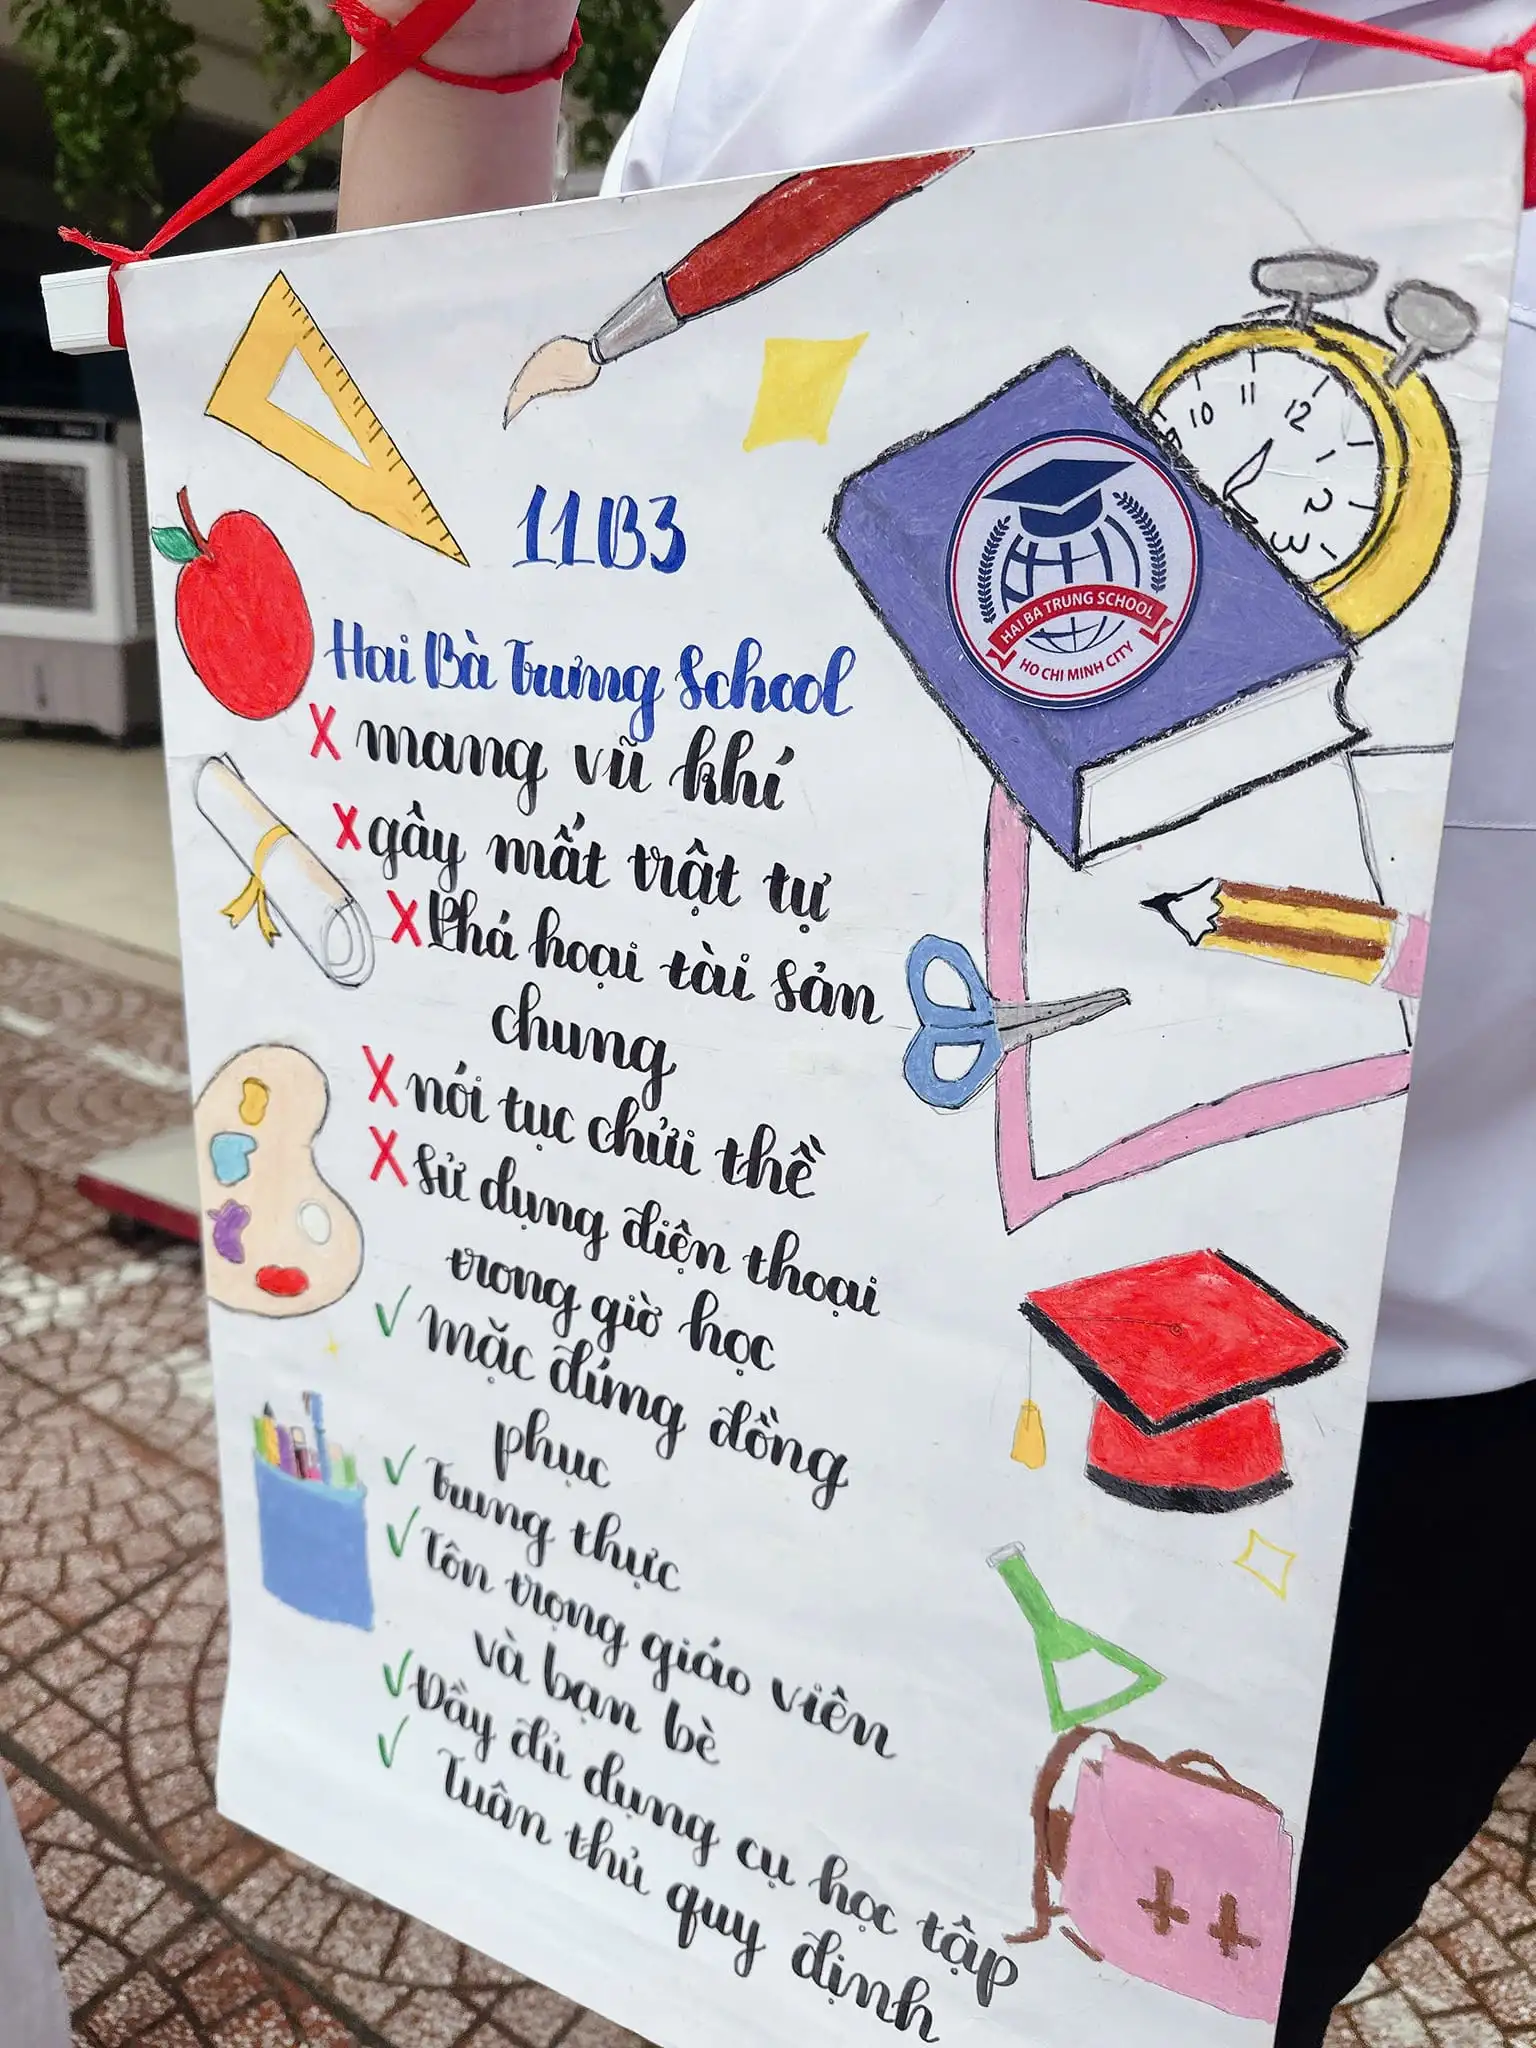 11B3
Hai Bà Trưng School
X mang vũ khí
X gây mất trật tự
X Phá hoại tài sản
chung
X nói tục chửi thề
X sử dụng điện thoại
trong giờ học
✓ Mặc đúng đồng
phục
✓ Trung thực
✓ Tôn trọng giáo viên
và bạn bè
✓ Đầy đủ dụng cụ học tập
✓ Tuân thủ quy định
HAI BA TRUNG SCHOOL
HO CHI MINH CITY
10 11 12
1
2
3